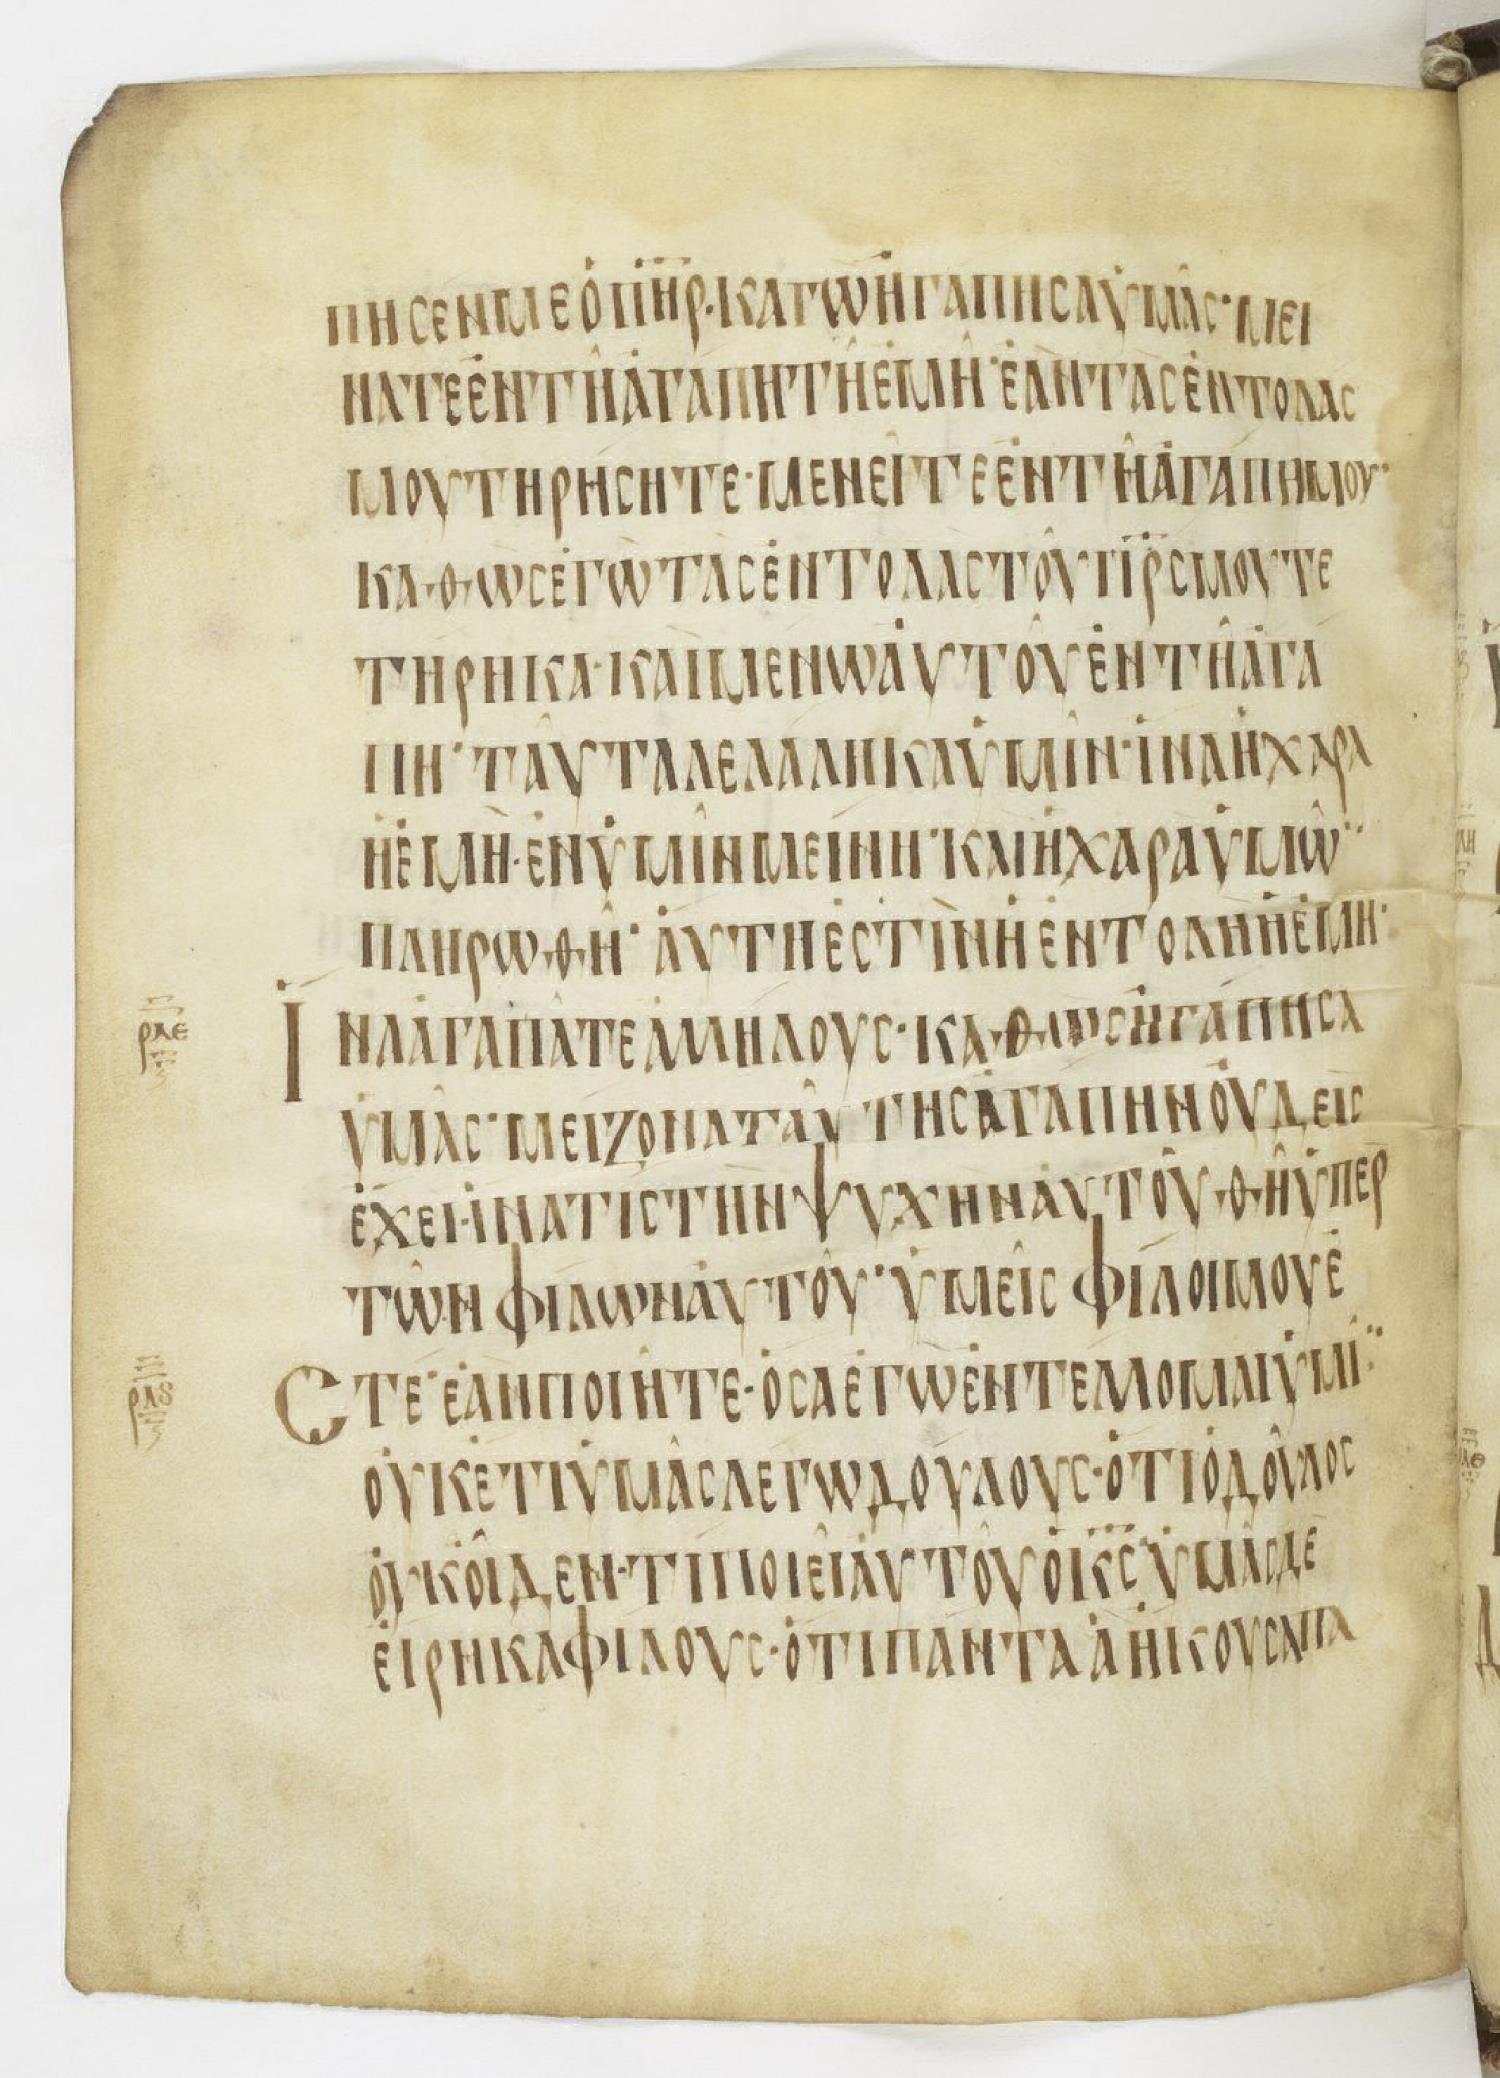 ΠΗϹΕΝΜΕὁΠ̅Η̅Ρ̅·ΚΑΓΩἨΓΑΠΗϹΑὑΜᾶϹ·ΜΕΙ
ΝΑΤΕἐΝΤῆἀΓΑΠΗΤῆἐΜῆ·ἐὰΝΤὰϹἐΝΤΟΛΑϹ
ΜΟΥΤΗΡΗϹΗΤΕ·ΜΕΝΕῖΤΕἐΝΤῆἀΓΑΠΗΜΟΥ·
ΚΑΘὼϹἐΓὼΤὰϹἐΝΤΟΛΑϹΤΟῦΠ̅Ρ̅Ϲ̅ΜΟΥΤΕ
ΤΗΡΗΚΑ·ΚΑὶΜΕΝΩΑὐΤΟῦἐΝΤῆἀΓΑ
ΠΗ·ΤΑῦΤΑΛΕΛΑΛΗΚΑὑΜῖΝ·ἵΝΑἡΧΑΡΑ
ἡἐΜὴ·ἐΝὑΜῖΝΜΕΙΝΗ·ΚΑΙἡΧΑΡΑὑΜῶ̈
ΠΛΗΡΩΘῆ·ΑὐΤΗἐϹΤὶΝἡἐΝΤΟΛΗἡἐΜΗ·
ἸΝΑἀΓΑΠᾶΤΕἀΛΛΗΛΟΥϹ·ΚΑΘὼϹἠΓΑΠΗϹΑ
ὑΜᾶϹ·ΜΕΙΖΟΝΑΤΑῦΤΗϹἀΓΑΠΗΝΟὐΔΕΙϹ
ἐΧΕΙ·ἵΝΑΤΙϹΤῊΝΨΥΧΗΝΑὐΤΟῦΘῆὑΠΕΡ
ΤῶΝΦΙΛΩΝΑὐΤΟῦ·ὑΜΕῖϹΦΙΛΟΙΜΟΥἐ
ϹΤΕ·ἐὰΝΠΟΙῆΤΕ·ὅϹΑἐΓὼἐΝΤΕΛΛΟΜΑΙὑΜῖ̈
ΟὐΚἐΤΙὑΜᾶϹΛΕΓΩΔΟΥΛΟΥϹ·ὅΤΙὁΔΟῦΛΟϹ
ΟὐΚΟἶΔΕΝ·ΤΙΠΟΙΕῖΑὐΤΟῦὁΚ̅Ϲ̅·ὑΜᾶϹΔὲ
ΕἰΡΗΚΑΦΙΛΟΥϹ·ὅΤΙΠΑΝΤΑἃἨΚΟΥϹΑΠΑ
ΡΛΕ
ΡΛϚ